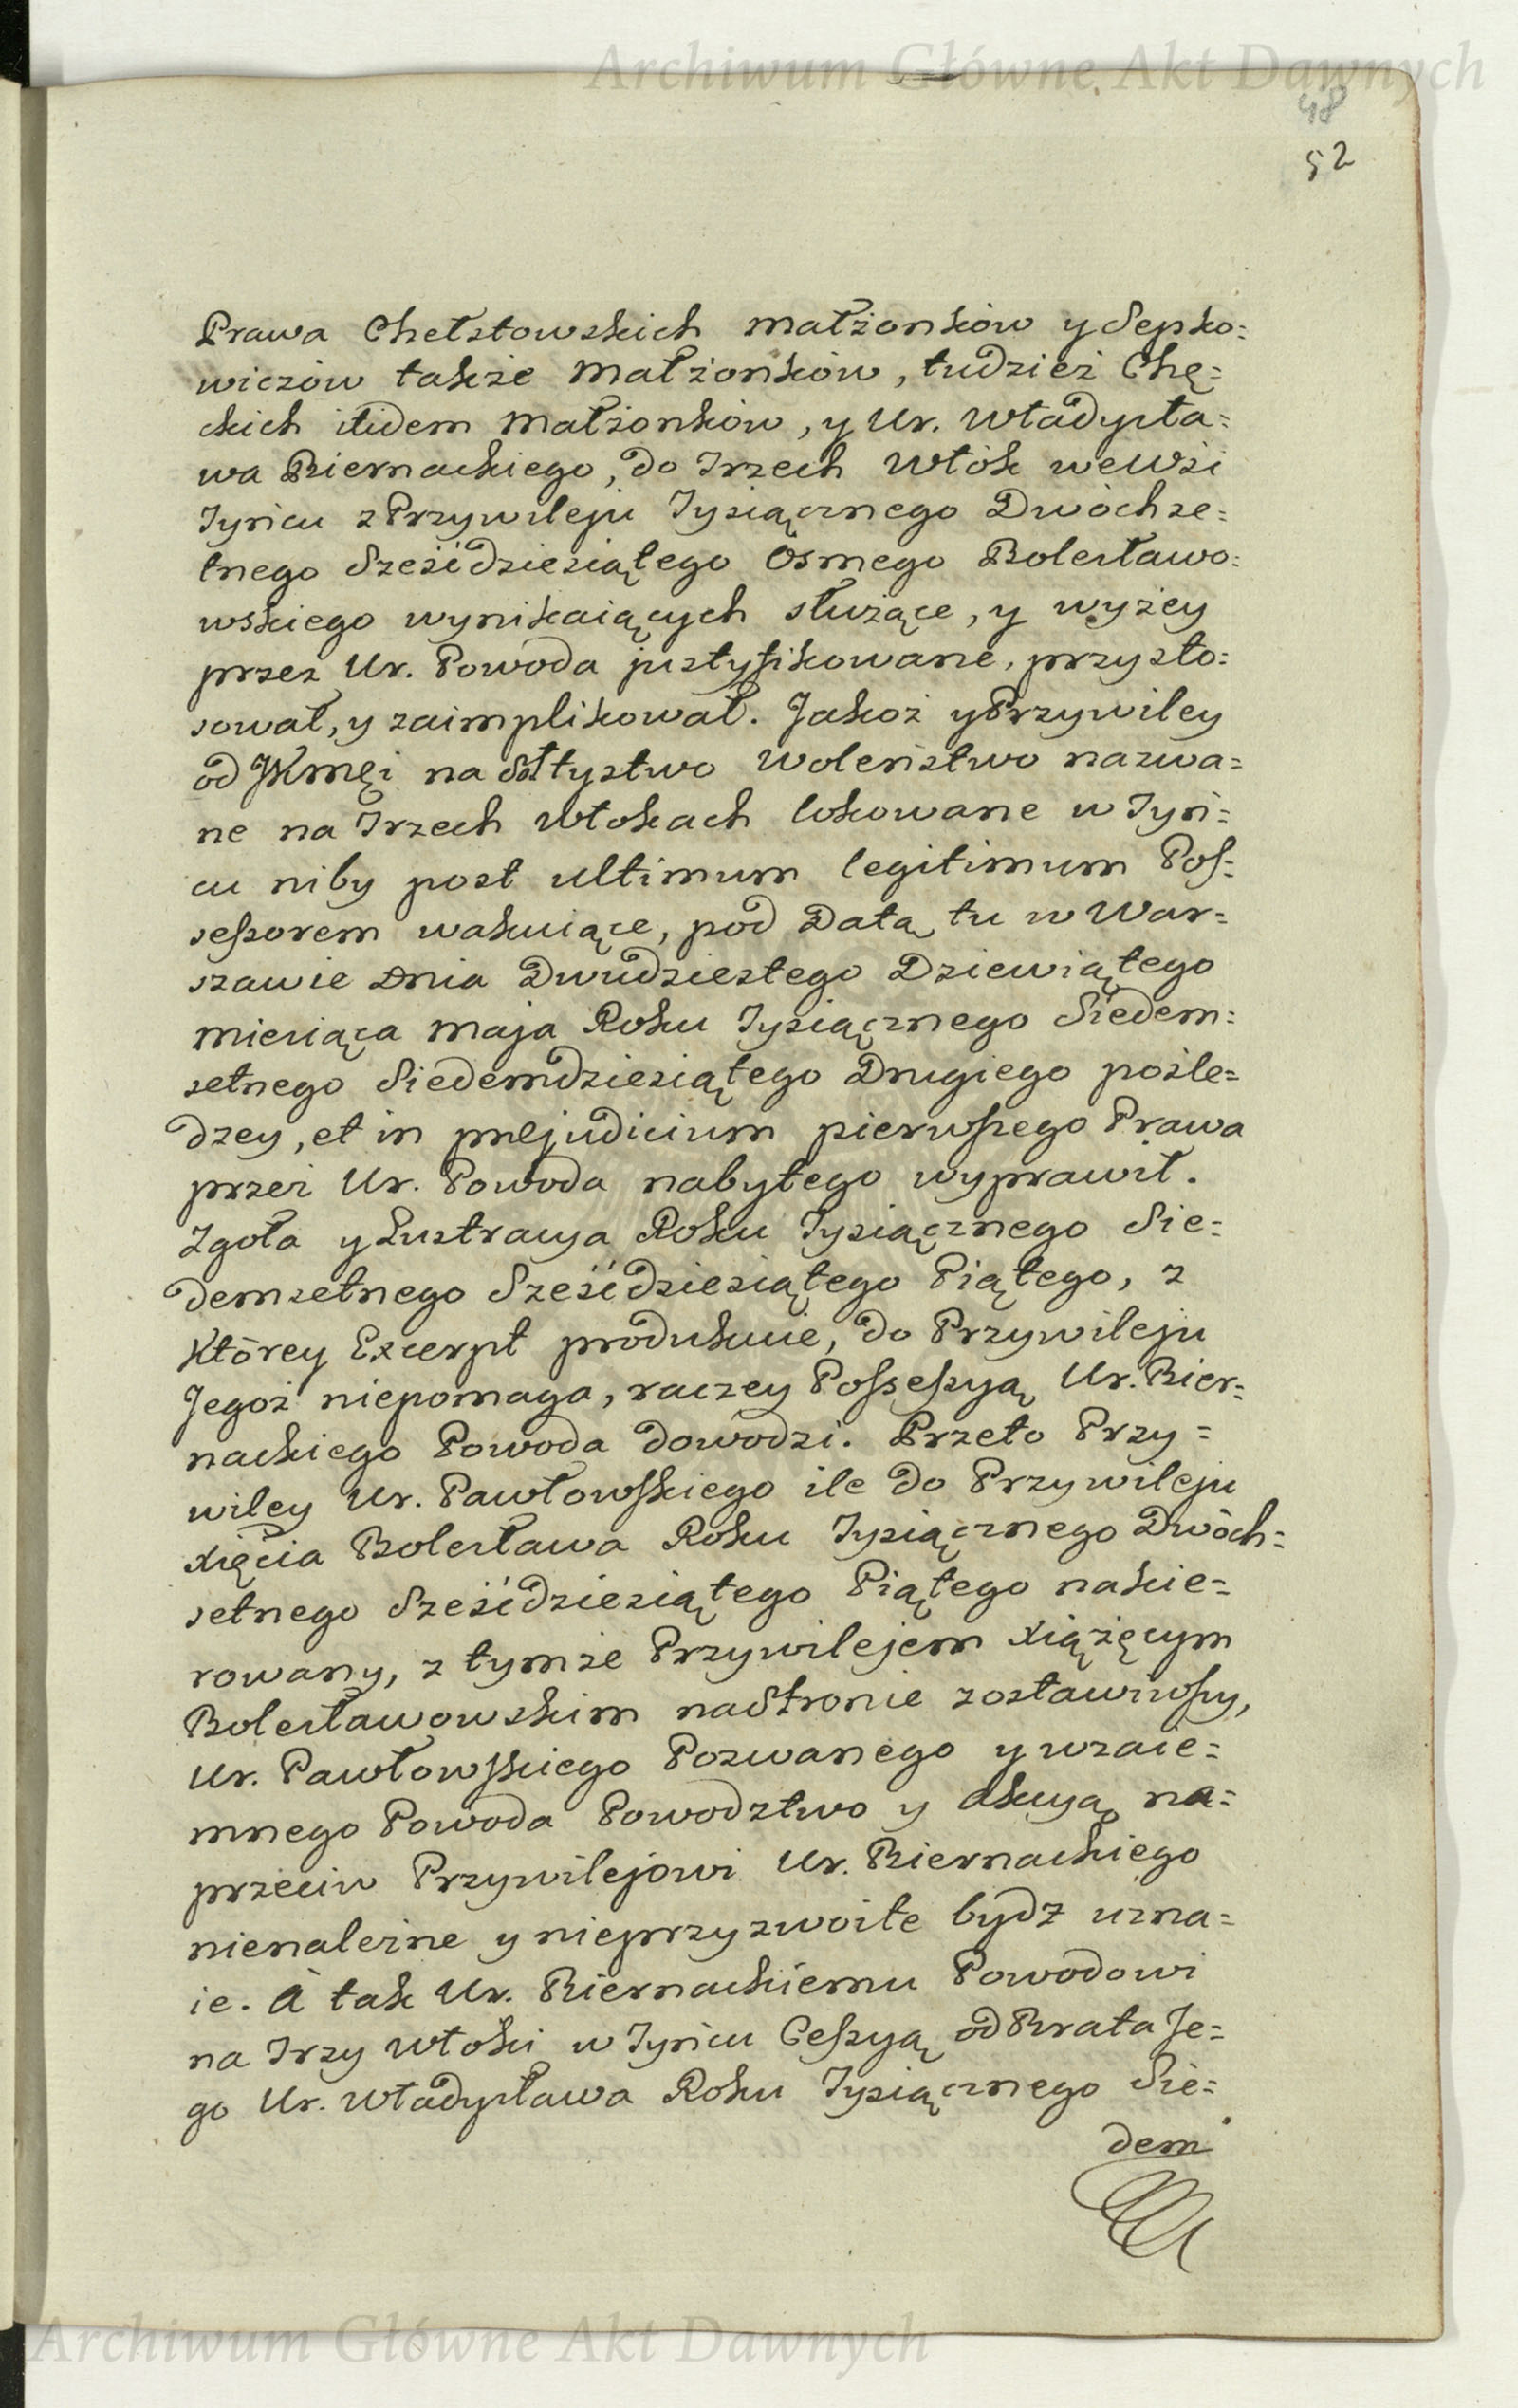 Archiwum Główne Akt Dawnych
48
52
Prawa Chełstowskich Małżonków y Sepko=
wiczów także Małżonków, tudzież Chę=
ckich itidem Małżonków, y Ur. Władysła=
wa Biernackiego, do Trzech Włók we Wsi
Tyńcu z Przywileju Tysiącznego Dwóchse=
tnego Sześćdziesiątego Osmego Bolesławo=
wskiego wynikaiących służące, y wyżey
przez Ur. Powoda justyfikowane, przysto=
sował, y zaimplikował. Jakoż y Przywiley
od JKmci na Sołtystwo Woleństwo nazwa=
ne na Trzech Włokach lokowane w Tyń=
cu niby post ultimum legitimum Pos=
sessorem wakuiące, pod Datą tu w War=
szawie Dnia Dwudziestego Dziewiątego
Miesiąca Maja Roku Tysiącznego Siedem=
setnego Siedemdziesiątego Drugiego pośle=
dzey, et in præjudicium pierwszego Prawa
przez Ur. Powoda nabytego wyprawił.
Zgoła y Lustracya Roku Tysiącznego Sie=
demsetnego Sześćdziesiątego Piątego, z
Którey Excerpt produkuie, do Przywileju
Jegoż niepomaga, raczey Possessyą Ur. Bier=
nackiego Powoda dowodzi. Przeto Przy=
wiley Ur. Pawłowskiego ile do Przywileju
Xięcia Bolesława Roku Tysiącznego Dwóch=
setnego Sześćdziesiątego Piątego nakie=
rowany, z tymże Przywilejem Xiążęcym
Bolesławowskim na Stronie zostawiwszy,
Ur. Pawłowskiego Pozwanego y wzaie=
mnego Powoda Powodztwo y Akcyą na=
przeciw Przywilejowi Ur. Biernackiego
nienależne y nieprzyzwoite bydz uzna=
ie. A tak Ur. Biernackiemu Powodowi
na Trzy Włoki w Tyńcu Cessyą od Brata Je=
go Ur. Władysława Roku Tysiącznego Sie=
dem
Archiwum Główne Akt Dawnych